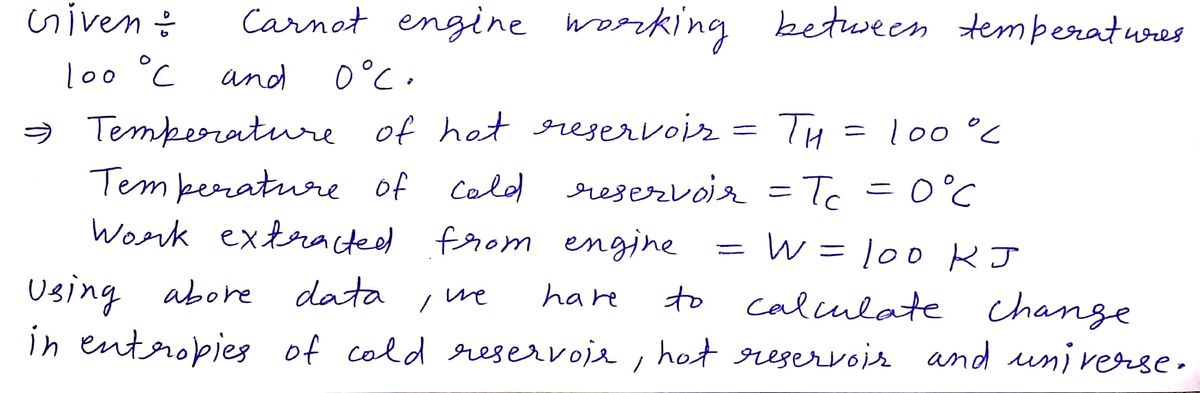 Given ÷ Carnot engine working between temperatures
100 °C and 0°C.
⇒ Temperature of hot reservoir = TH = 100 °C
Temperature of cold reservoir = Tc = 0°C
Work extracted from engine = W = 100 KJ
Using above data , we have to calculate change
in entropies of cold reservoir , hot reservoir and universe.